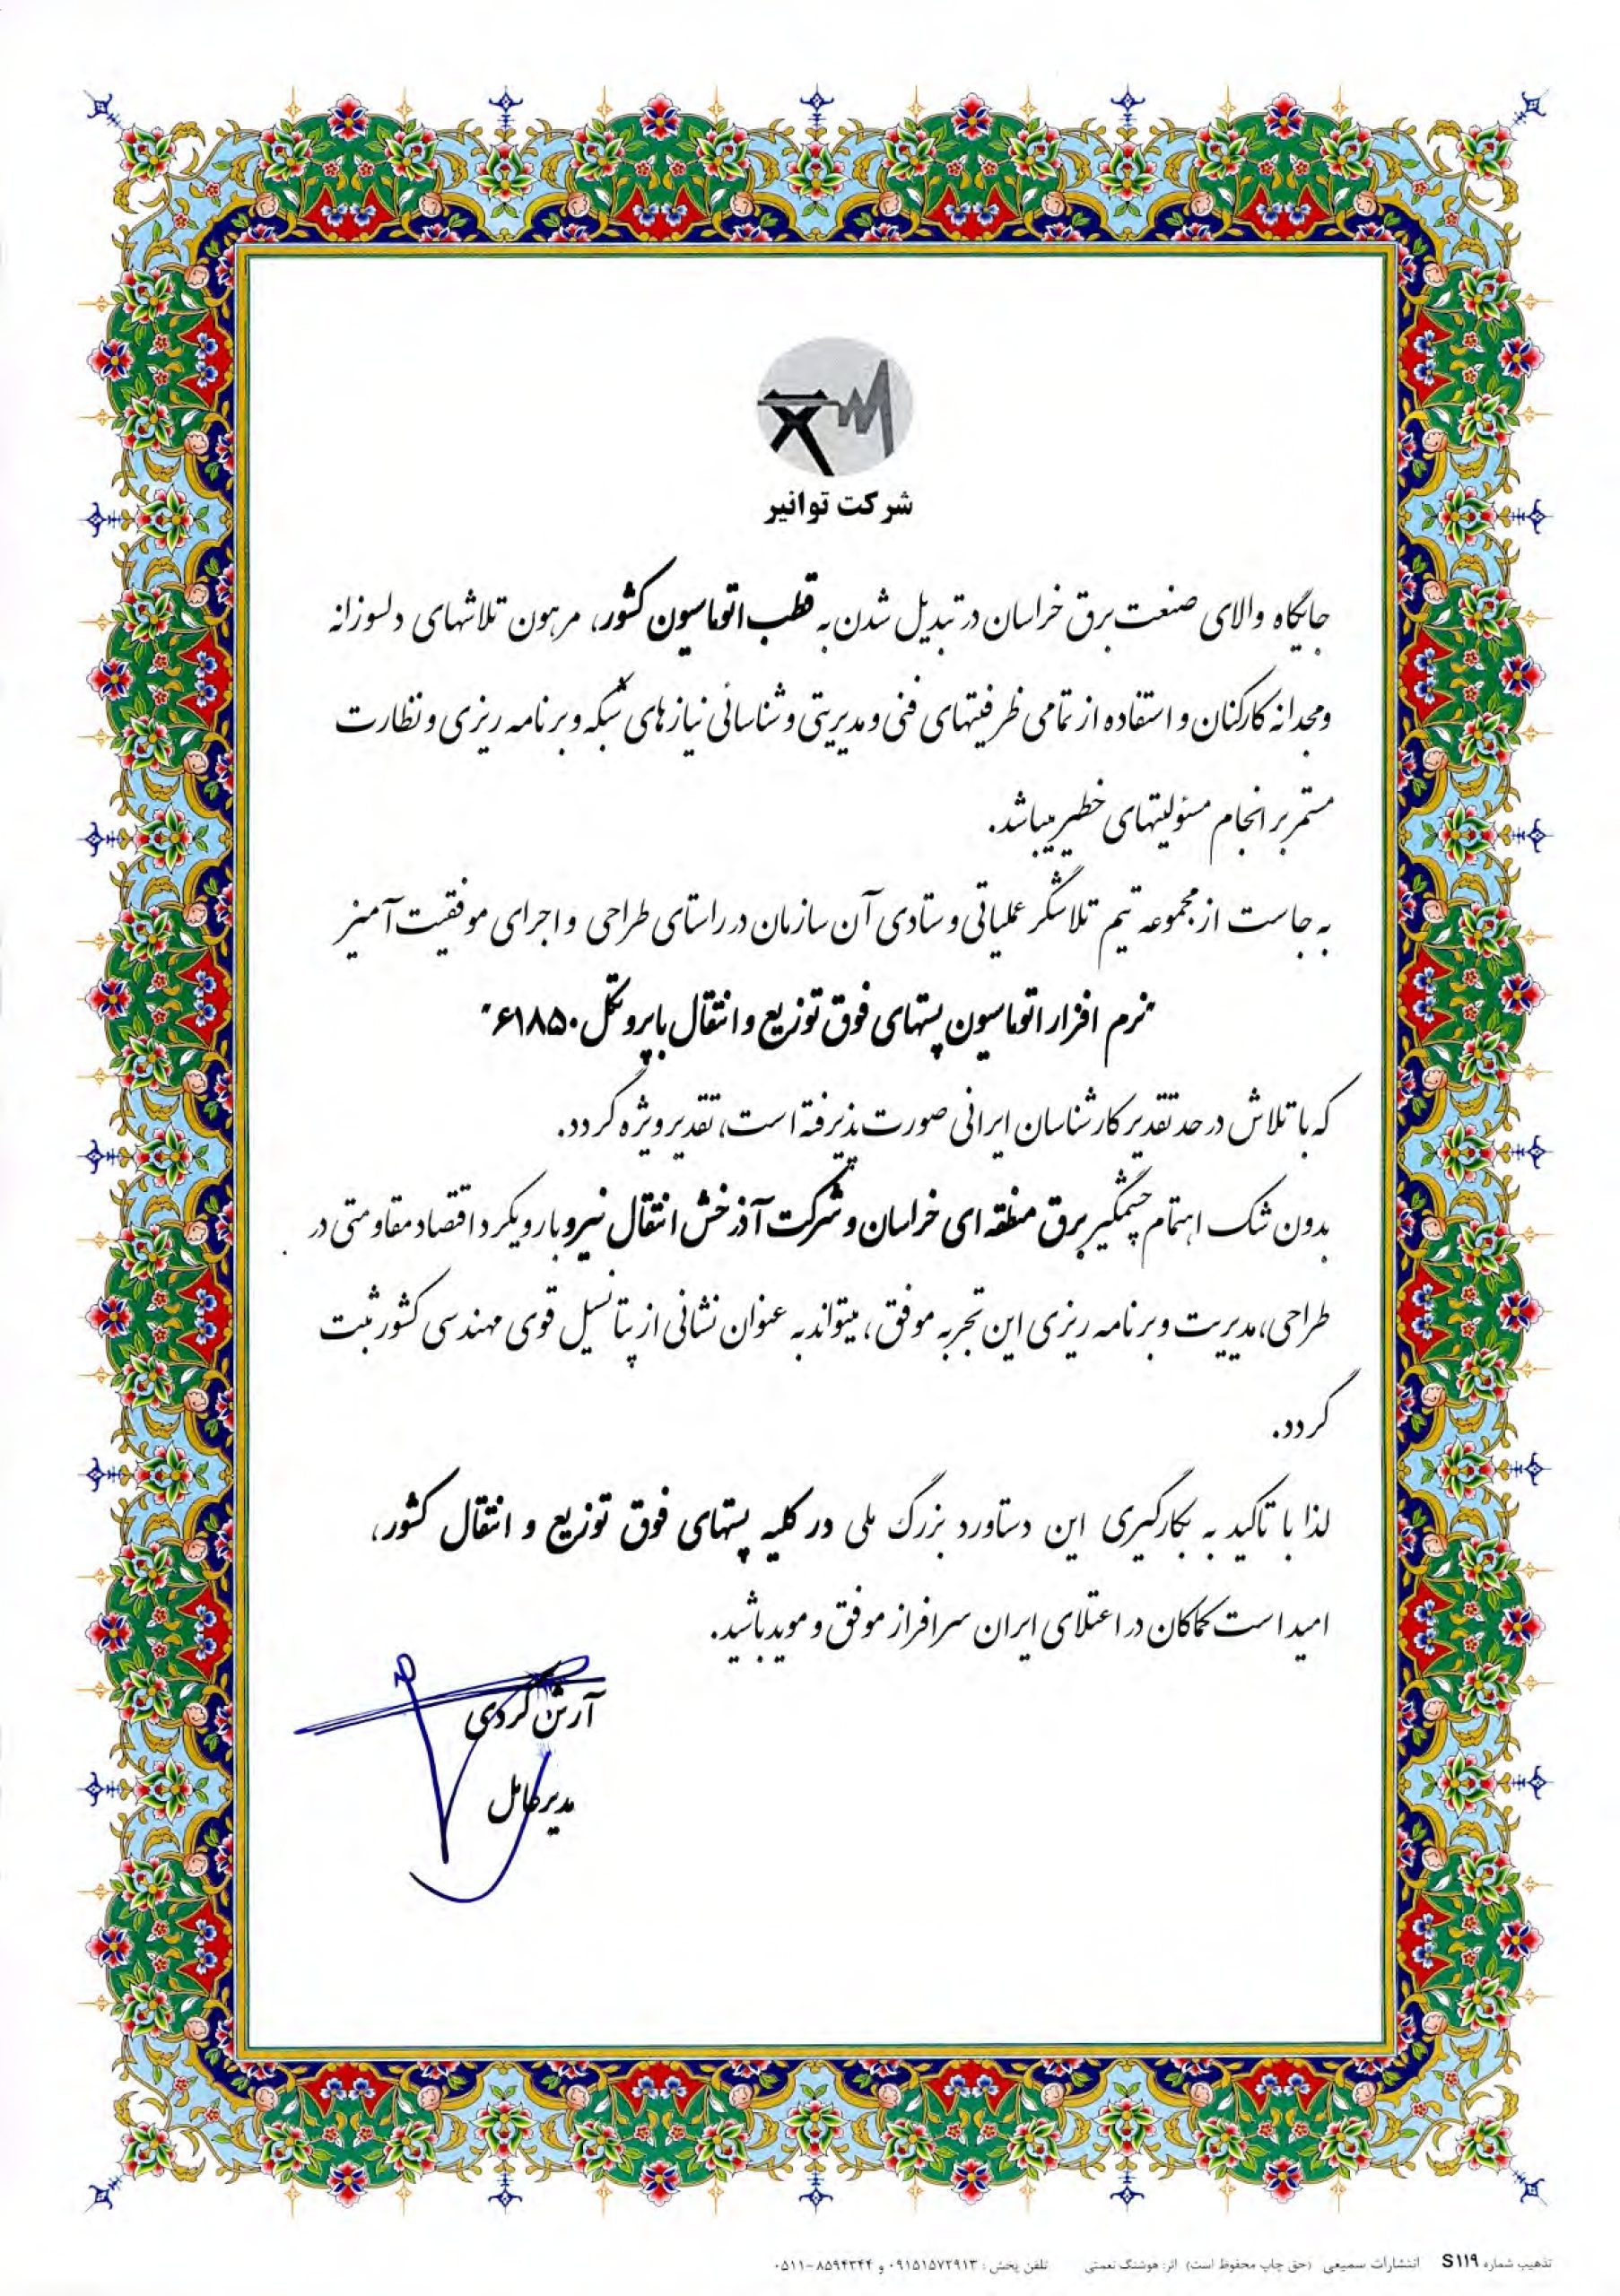 شرکت توانیر
جایگاه والای صنعت برق خراسان در تبدیل شدن به قطب اتوماسیون کشور، مرهون تلاشهای دلسوزانه
ومجدانه کارکنان و استفاده از تمامی ظرفیتهای فنی و مدیریتی و شناسائی نیازهای شبکه و برنامه ریزی و نظارت
مستمر بر انجام مسئولیتهای خطیر میباشد.
به جاست از مجموعه تیم تلاشگر عملیاتی و ستادی آن سازمان در راستای طراحی و اجرای موفقیت آمیز
"نرم افزار اتوماسیون پستهای فوق توزیع و انتقال با پروتکل ۶۱۸۵۰"
که با تلاش در حد تقدیر کارشناسان ایرانی صورت پذیرفته است، تقدیر ویژه گردد.
بدون شک اهتمام چشمگیر برق منطقه ای خراسان و شرکت آذرخش انتقال نیرو با رویکرد اقتصاد مقاومتی در
طراحی، مدیریت و برنامه ریزی این تجربه موفق، میتواند به عنوان نشانی از پتانسیل قوی مهندسی کشور ثبت
گردد.
لذا با تاکید به بکارگیری این دستاورد بزرگ ملی در کلیه پستهای فوق توزیع و انتقال کشور،
امید است کماکان در اعتلای ایران سرافراز موفق و موید باشید.
آرش کردی
مدیرعامل
تذهیب شماره S۱۱۹ انتشارات سمیعی (حق چاپ محفوظ است) اثر: هوشنگ نعمتی تلفن پخش: ۰۹۱۵۱۵۷۲۹۱۳ و ۸۵۹۴۳۴۴-۰۵۱۱